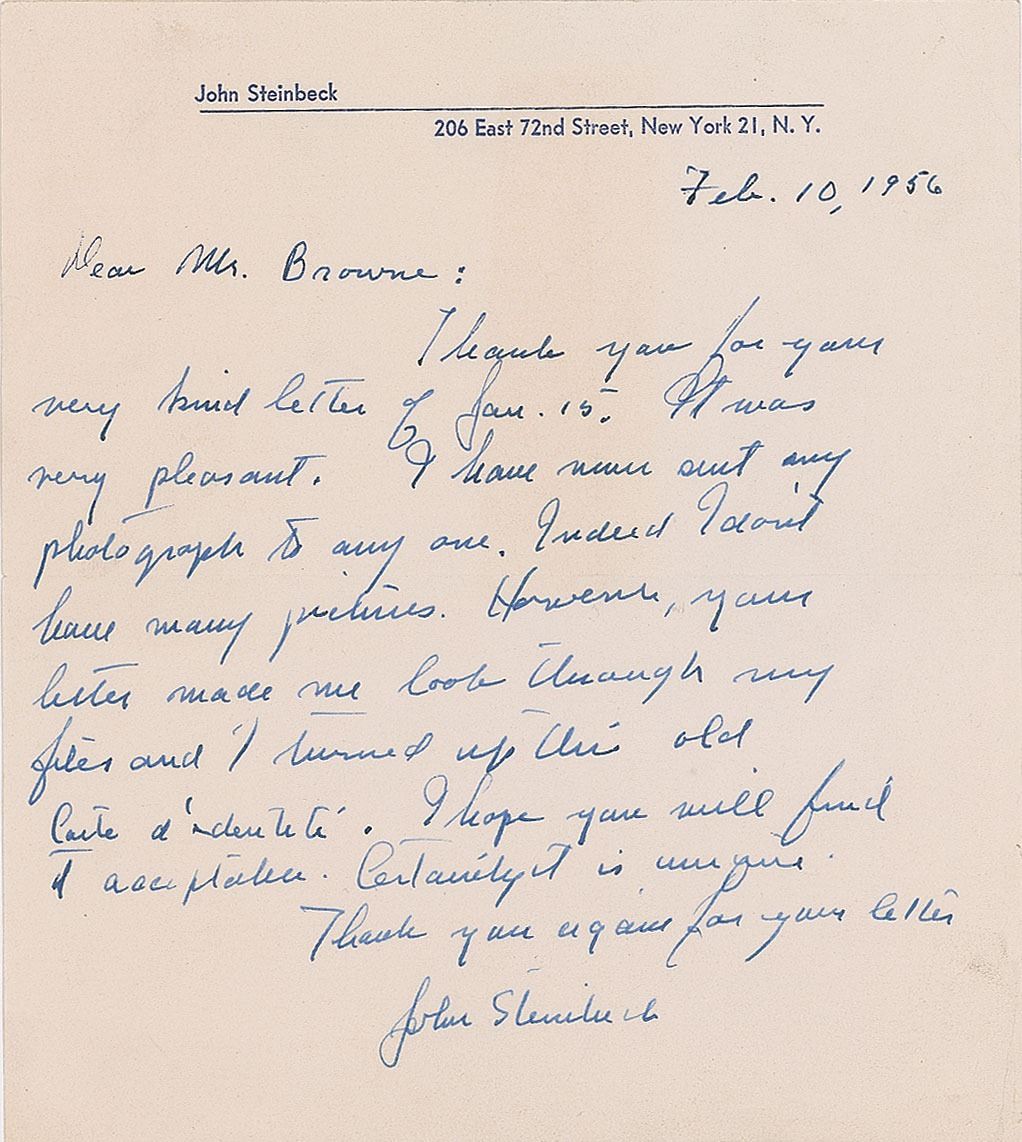 John Steinbeck
206 East 72nd Street, New York 21, N. Y.
Feb. 10, 1956
Dear Mr. Browne:
Thank you for your
very kind letter of Jan. 15. It was
very pleasant. I have never sent any
photograph to any one. Indeed I don't
have many pictures. However, your
letter made me look through my
files and I turned up this old
Carte d'identité. I hope you will find
it acceptable. Certainly it is unique.
Thank you again for your letter
John Steinbeck